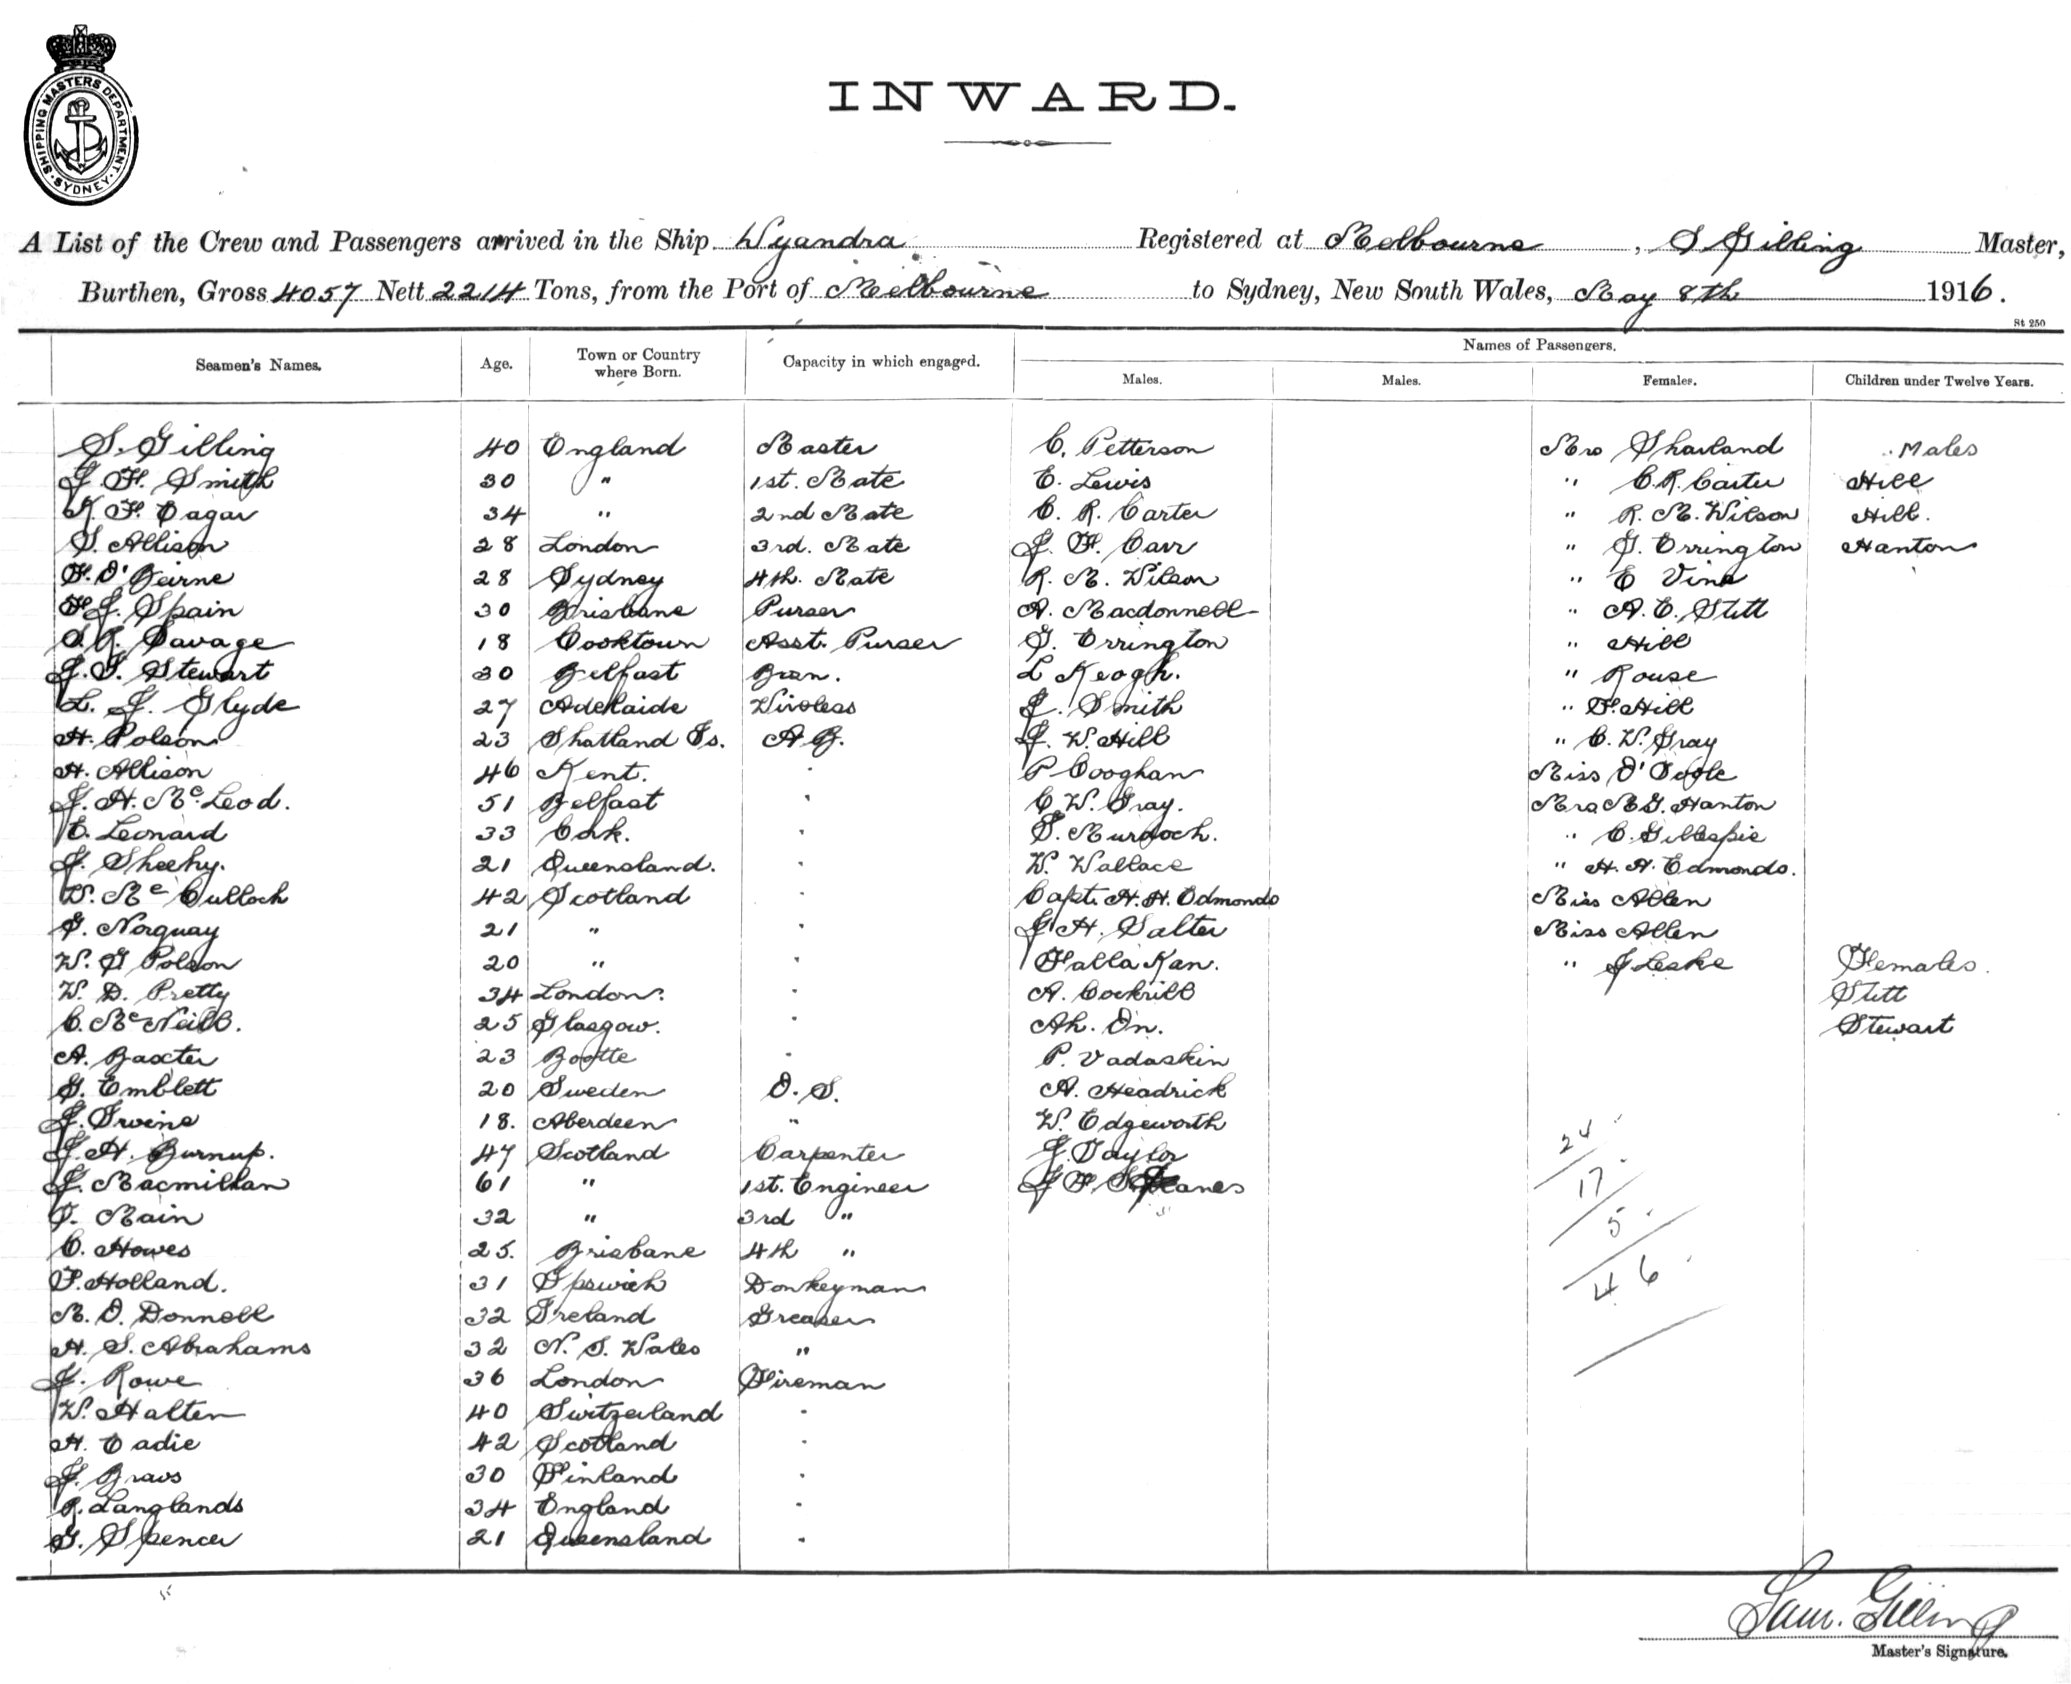 SHIPPING MASTERS DEPARTMENT. SYDNEY.
INWARD.
A List of the Crew and Passengers arrived in the Ship Wyandra Registered at Melbourne, S Gilling Master,
Burthen, Gross 4057 Nett 2214 Tons, from the Port of Melbourne to Sydney, New South Wales, May 8th 1916.
St 250
Names of Passengers.
Seamen's Names. Age. Town or Country where Born. Capacity in which engaged. Males. Males. Females. Children under Twelve Years.
S. Gilling 40 England Master C. Petterson Mrs Sharland Males
J. H. Smith 30 " 1st. Mate E. Lewis " C. R. Carter Hill
K. F. Eagar 34 " 2nd Mate C. R. Carter " R. M. Wilson Hill.
S. Allison 28 London 3rd. Mate J. F. Carr " G. Errington Hanton
F. O'Beirne 28 Sydney 4th. Mate R. M. Wilson " E Vine
F J. Spain 30 Brisbane Purser A. Macdonnell " A. E. Stett
R. Savage 18 Cooktown Asst. Purser G. Errington " Hill
J. S. Stewart 30 Belfast L Keogh. " Rouse
L. J. Glyde 27 Adelaide Wireless J. Smith " F. Hill
H. Polson 23 Shatland Is. A B. J. W. Hill " C. W. Gray
H. Allison 46 Kent. " P Cooghan Miss O'Toole
J. H. McLeod. 51 Belfast " C. W. Gray. Mrs M G. Hanton
E. Leonard 33 Cork. " S. Murdoch. " C. Gillespie
J. Sheehy. 21 Queensland. " W. Wallace " H. H. Edmonds.
W. McCulloch 42 Scotland " Capt. H. H. Edmonds Miss Allen
G. Norquay 21 " " J H. Salter Miss Allen
W. G Polson 20 " " Falla Kan. " J Leske Females.
W. D. Pretty 34 London. " A. Cockrill Stett
C. McNeill. 25 Glasgow. " Ah. On. Stewart
A. Baxter 23 Bootte " P. Vadaskin
G. Emblett 20 Sweden O. S. A. Headrick
J. Irvine 18. Aberdeen " W. Edgeworth
J. H. Burnup. 47 Scotland Carpenter J. Taylor 24
J. Macmillan 61 " 1st. Engineer J F 17
T. Main 32 " 3rd " 5
C. Howes 25. Brisbane 4th " 46
F. Holland. 31 Ipswich Donkeyman
M. O. Donnell 32 Ireland Greaser
H. S. Abrahams 32 N. S. Wales "
J. Rowe 36 London Fireman
W. Halten 40 Switzerland "
H. Eadie 42 Scotland "
J. Braws 30 Finland "
R. Langlands 34 England "
G. Spencer 21 Queensland "
Sam. Gilling
Master's Signature.